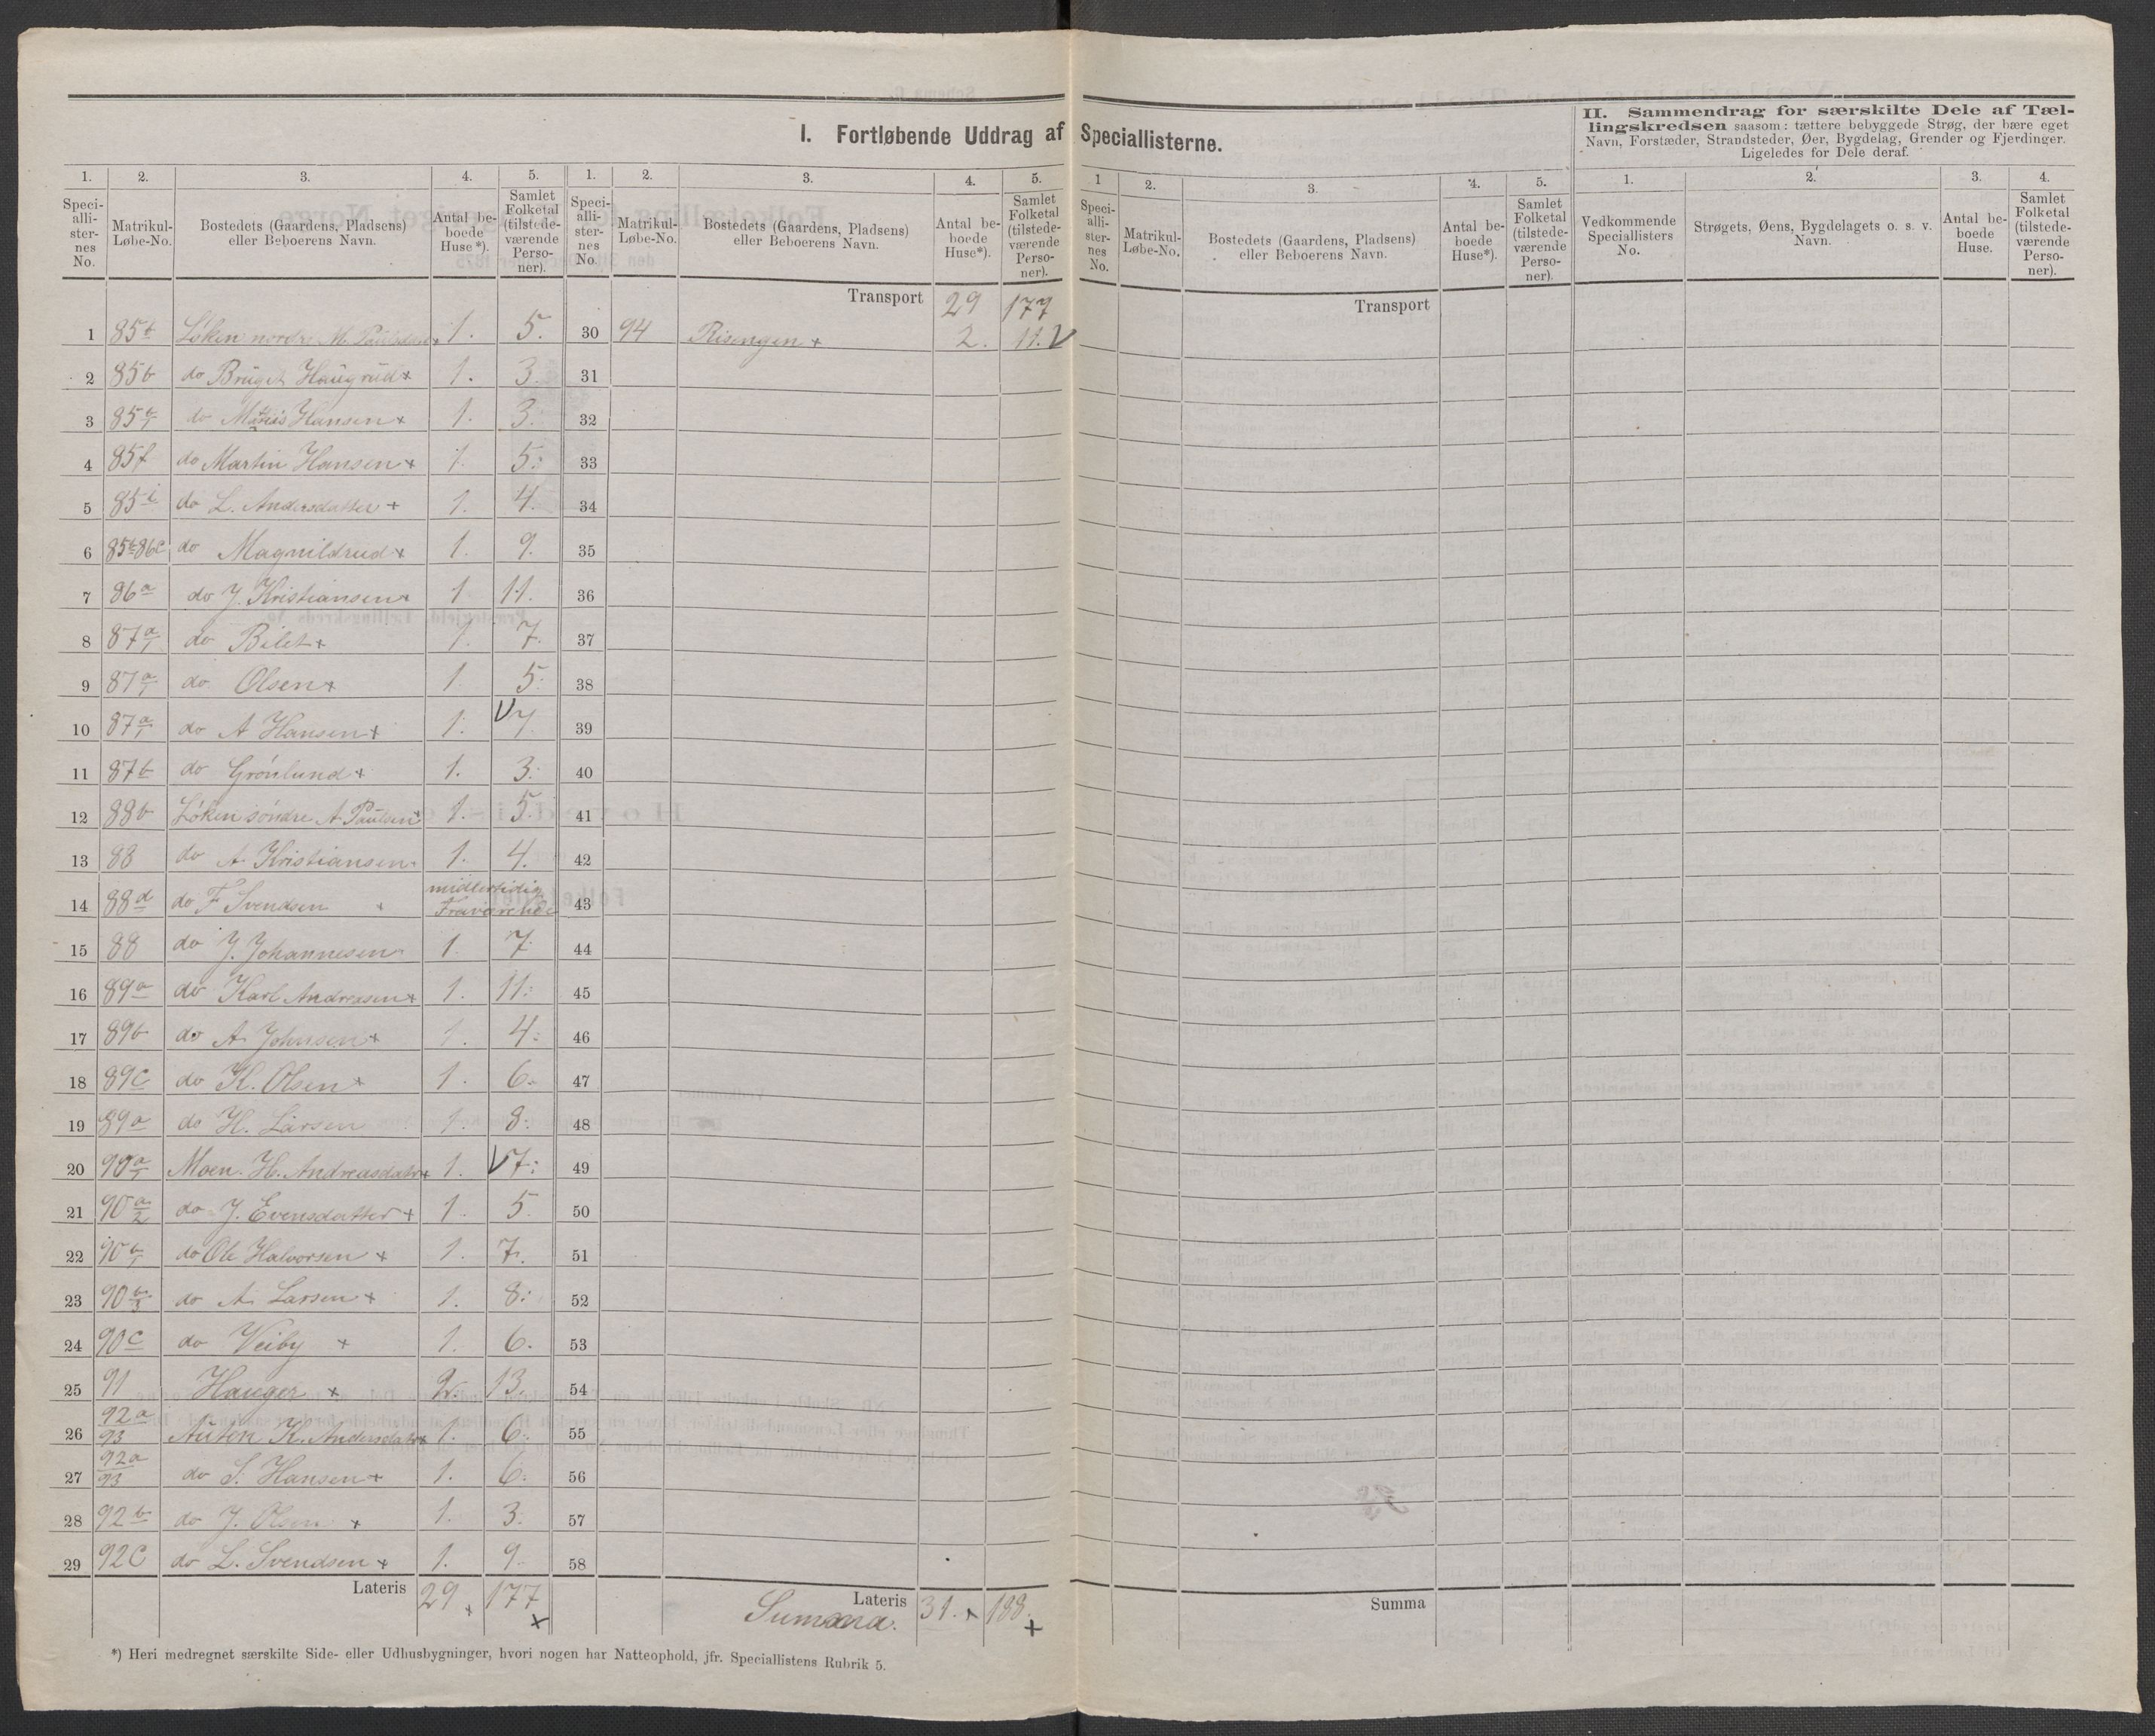 I. Fortløbende Uddrag af Speciallisterne.
II. Sammendrag for særskilte Dele af Tæl-
lingskredsen saasom: tættere bebyggede Strøg, der bære eget
Navn, Forstæder, Strandsteder, Øer, Bygdelag, Grender og Fjerdinger.
Ligeledes for Dele deraf.
1. 2. 3. 4. 5. 1. 2. 3. 4. 5. 1 2. 3. 4. 5. 1. 2. 3. 4.
Speci-alli-ster-nes No. Matrikul-Løbe-No. Bostedets (Gaardens, Pladsens) eller Beboerens Navn. Antal be-boede Huse*). Samlet Folketal (tilstede-værende Perso-ner).
Speci-alli-ster-nes No. Matrikul-Løbe-No. Bostedets (Gaardens, Pladsens) eller Beboerens Navn. Antal be-boede Huse*). Samlet Folketal (tilstede-værende Perso-ner).
Speci-alli-ster-nes No. Matrikul-Løbe-No. Bostedets (Gaardens, Pladsens) eller Beboerens Navn. Antal be-boede Huse*). Samlet Folketal (tilstede-værende Perso-ner).
Vedkommende Speciallisters No. Strøgets, Øens, Bygdelagets o. s. v. Navn. Antal be-boede Huse. Samlet Folketal (tilstede-værende Perso-ner).
Transport 29 177
Transport
1 85b Løken nordre M. Paulsdatter 1. 5. 30 94 Risengen + 2. 11. V
2 85b do Bruget Haugrud + 1. 3. 31
3 85 do Hansen + 1. 3. 32
4 85f do Martin Hansen + 1. 5: 33
5 85i do L. Andersdatter + 1. 4. 34
6 85 86c do Magnildrud + 1. 9. 35
7 86a do J. Kristiansen + 1 11. 36
8 87a/1 do Bilet + 1. 7. 37
9 87a/1 do Olsen + 1. 5: 38
10 87a/1 do A Hansen + 1. V 7. 39
11 87b do Grønlund + 1. 3: 40
12 88b Løken søndre A Paulsen + 1. 5. 41
13 88 do A. Kristiansen 1. 4. 42
14 88d do F Svendsen + midlertidig Fraværende 43
15 88 do J. Johannesen 1 7. 44
16 89a do Karl Andreasen + 1. 11: 45
17 89b do A. Johnsen + 1. 4: 46
18 89c do K. Olsen + 1. 6: 47
19 89a do H. Larsen 1. 8: 48
20 90a/1 Moen. H. Andreasdatter + 1. V 7: 49
21 90a/2 do J. Evensdatter + 1. 5. 50
22 90b/1 do Ole Halvorsen + 1. 7. 51
23 90b/3 do A. Larsen + 1. 8: 52
24 90c do Veiby + 1. 6. 53
25 91 Hauger + 2. 13. 54
26 92a/93 Auten K. Andersdatter + 1. 6: 55
27 92a/93 do S. Hansen + 1. 6: 56
28 92b do J. Olsen + 1. 3: 57
29 92c do L. Svendsen + 1. 9. 58
Lateris 29 + 177 +
Lateris Summa. 31. + 188. +
Summa
*) Heri medregnet særskilte Side- eller Udhusbygninger, hvori nogen har Natteophold, jfr. Speciallistens Rubrik 5.